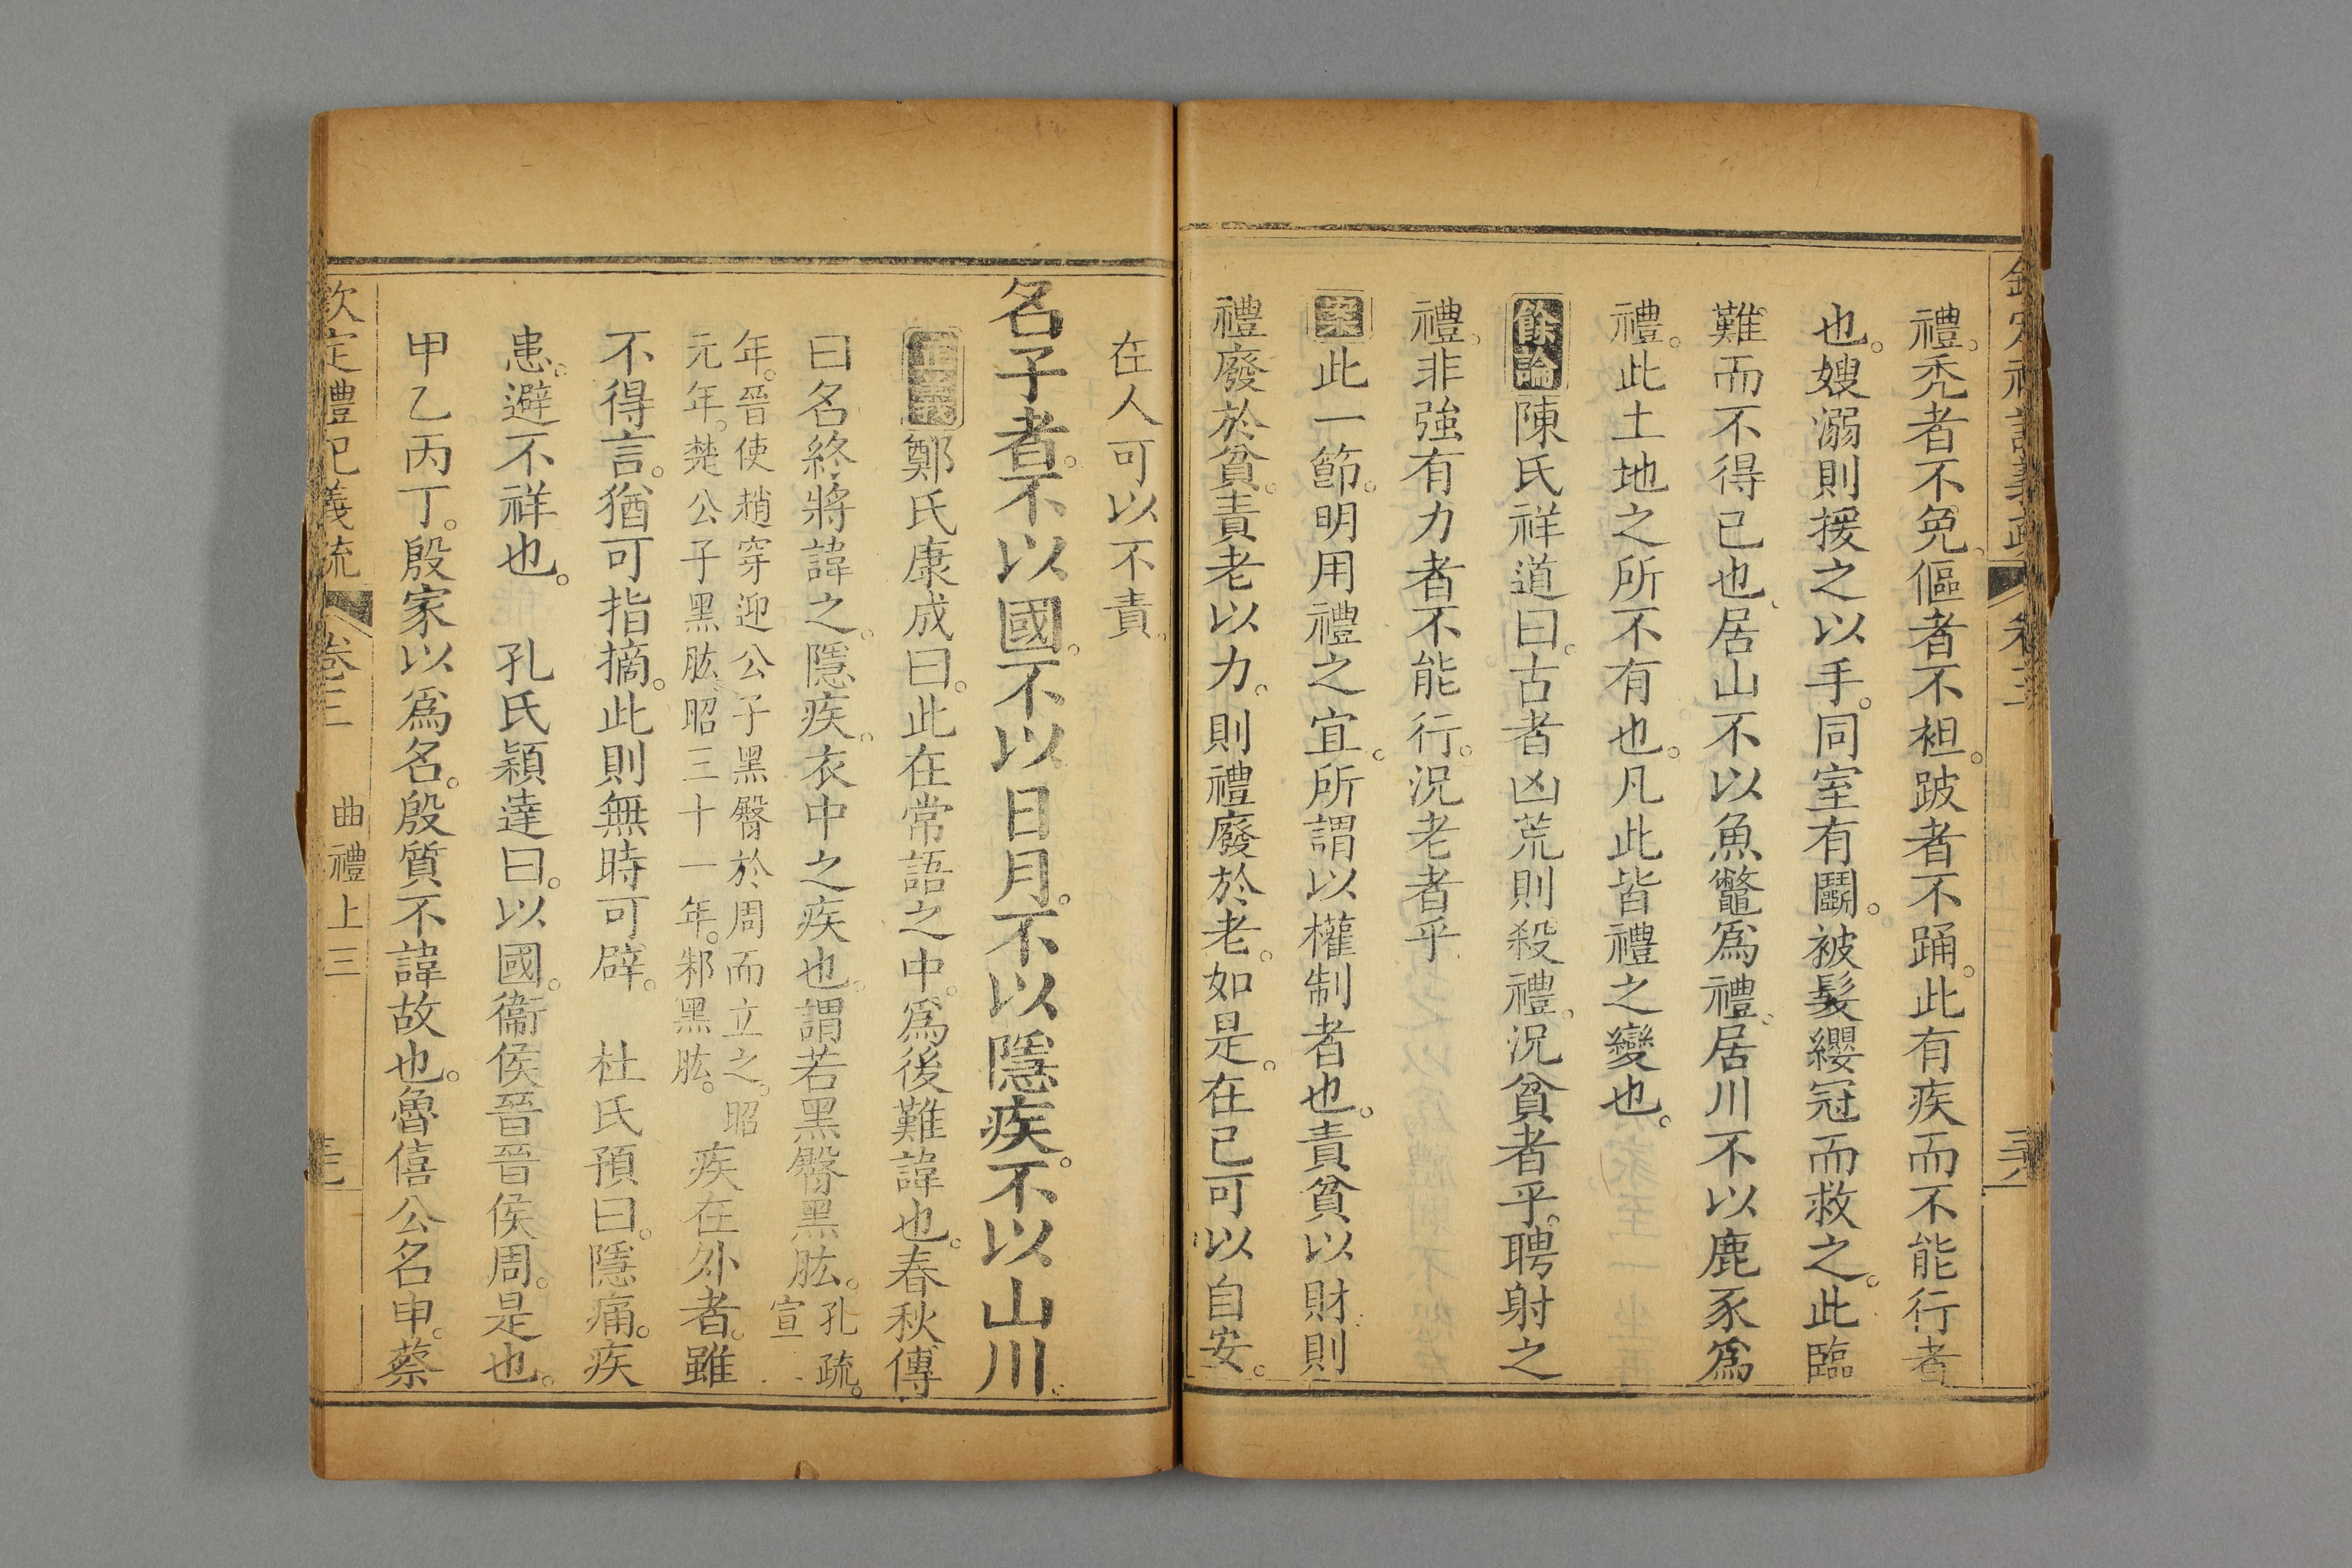 欽定禮記義疏 卷三
禮。禿者不免。傴者不袒。跛者不踊。此有疾而不能行者
也。嫂溺則援之以手。同室有鬭。被髮纓冠而救之。此臨
難而不得已也。居山不以魚鼈爲禮。居川不以鹿豕爲
禮。此土地之所不有也。凡此皆禮之變也。
餘論 陳氏祥道曰。古者凶荒則殺禮。況貧者乎。聘射之
禮。非強有力者不能行。況老者乎
案 此一節。明用禮之宜。所謂以權制者也。責貧以財。則
禮廢於貧。責老以力。則禮廢於老。如是。在已可以自安。
在人可以不責。
名子者。不以國。不以日月。不以隱疾。不以山川。
正義 鄭氏康成曰。此在常語之中。爲後難諱也。春秋傳
曰名終將諱之。隱疾。衣中之疾也。謂若黑臀黑肱。孔疏。宣
年。晉使趙穿迎公子黑臀於周而立之。昭
元年。楚公子黑肱昭三十一年。邾黑肱。
疾在外者。雖
不得言。猶可指摘。此則無時可辟。 杜氏預曰。隱痛。疾
患。避不祥也。 孔氏穎達曰。以國。衞侯晉晉侯周。是也。
甲乙丙丁。殷家以爲名。殷質不諱故也。魯僖公名申。蔡
欽定禮記義疏 卷三 曲禮上三